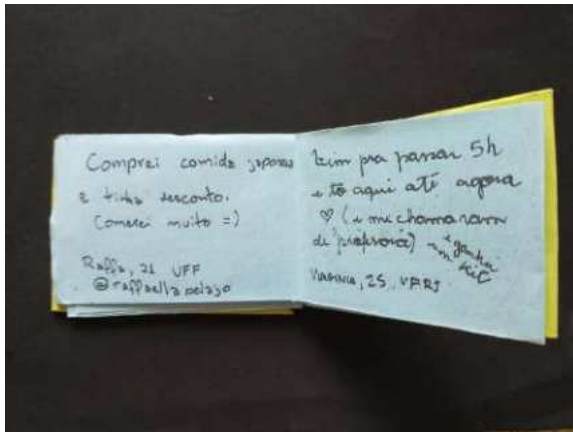 Comprei comida japonesa
e tinha desconto.
Comerei muito =)
Raffa, 21 UFF
@raffaellapelajo
Vim pra passar 5h
e tô aqui até agora
♡ (e me chamaram
de professora)
e ganhei
um kit
25, UFRJ